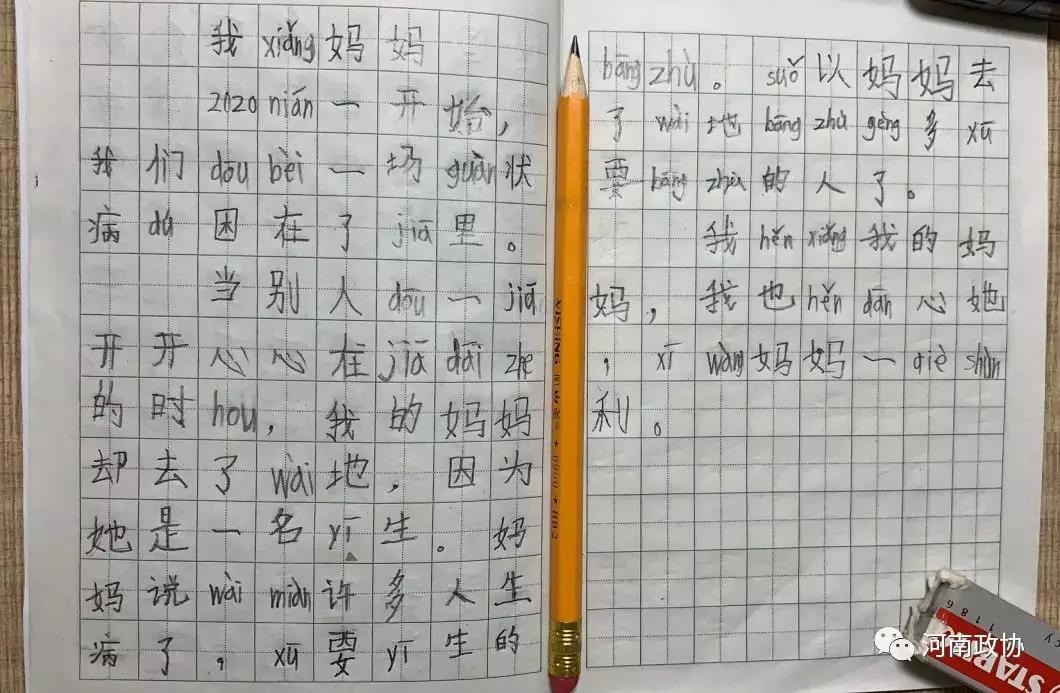 我xiǎng妈妈
2020nián一开始，
我们dōu bèi一场guàn状
病dú困在了jiā里。
当别人dōu一jiā
开开心心在jiā dāi zhe
的时hou，我的妈妈
却去了wài地，因为
她是一名yī生。妈
妈说wài miàn许多人生
病了，xū要yī生的
bāng zhù。suǒ以妈妈去
了wài地bāng zhù gèng多xū
要bāng zhù的人了。
我hěn xiǎng我的妈
妈，我也hěn dān心她
，xī wàng妈妈一qiè shùn
利。
MISING
6900 ★ HB-2
1 8 6
STAED
河南政协